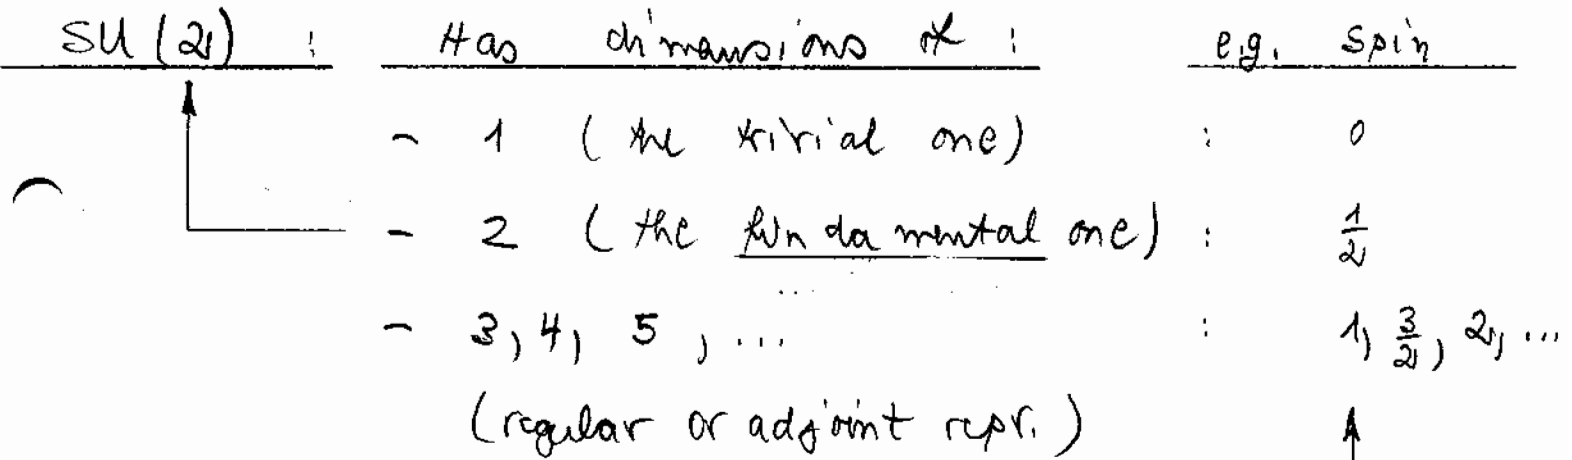 SU(2) : Has dimensions of : e.g. spin
- 1 (the trivial one) : 0
- 2 (the fundamental one) : 1/2
- 3, 4, 5, ... : 1, 3/2, 2, ...
(regular or adjoint repr.)